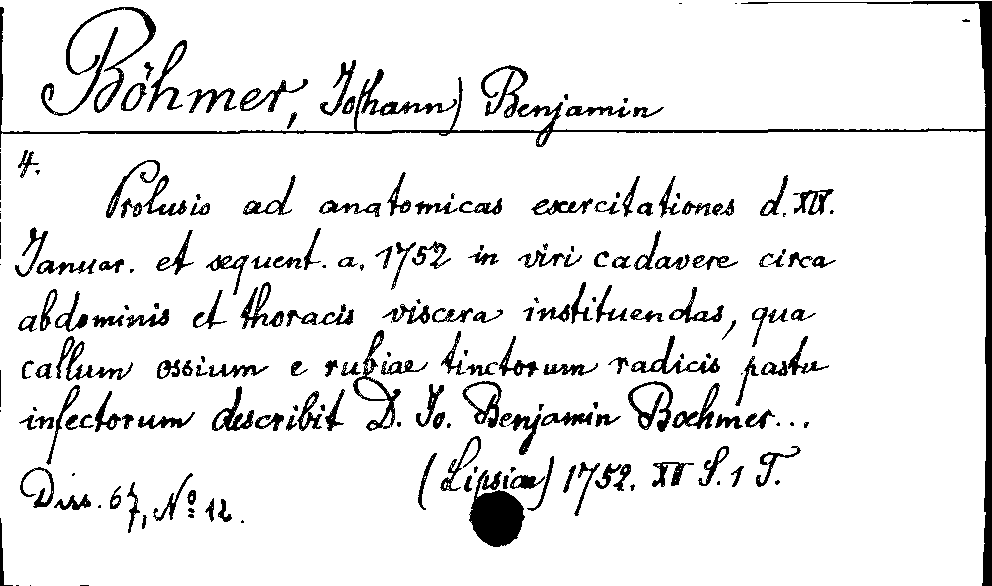 Böhmer, Jo(hann) Benjamin
4.
Prolusio ad anatomicas exercitationes d. XIV.
Januar. et sequent. a. 1752 in viri cadavere circa
abdominis et thoracis viscera instituendas, qua
callum ossium e rubiae tinctorum radicis pastu
infectorum describit D. Jo. Benjamin Boehmer...
(Lipsiae) 1752. XII S. 1 T.
Diss. 67, No 12.